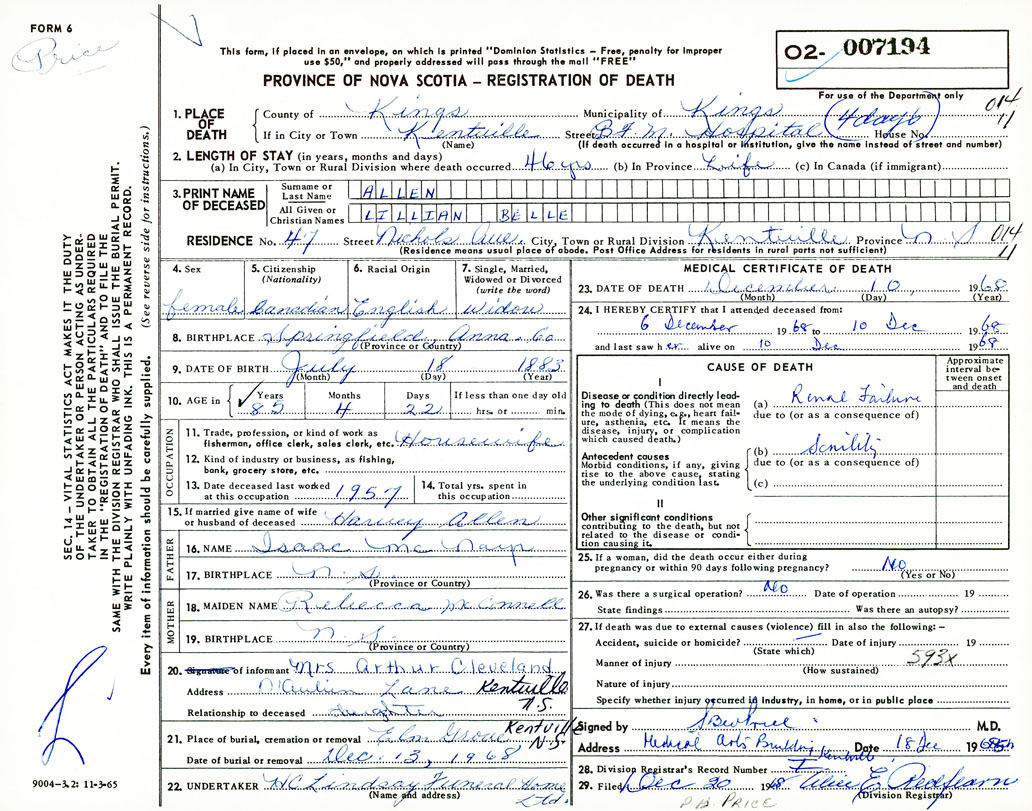 FORM 6
Price
This form, if placed in an envelope, on which is printed "Dominion Statistics – Free, penalty for improper
use $50," and properly addressed will pass through the mail "FREE"
PROVINCE OF NOVA SCOTIA – REGISTRATION OF DEATH
O2- 007194
For use of the Department only
014
11
1. PLACE OF DEATH
County of Kings Municipality of Kings
If in City or Town Kentville Street B F M Hospital House No. (4 days)
(Name) (If death occurred in a hospital or institution, give the name instead of street and number)
2. LENGTH OF STAY (in years, months and days)
(a) In City, Town or Rural Division where death occurred 46 yrs (b) In Province Life (c) In Canada (if immigrant)
3. PRINT NAME OF DECEASED
Surname or Last Name ALLEN
All Given or Christian Names LILLIAN BELLE
RESIDENCE No. 47 Street Nichols Ave. City, Town or Rural Division Kentville Province N S
014
11
(Residence means usual place of abode. Post Office Address for residents in rural parts not sufficient)
4. Sex 5. Citizenship (Nationality) 6. Racial Origin 7. Single, Married, Widowed or Divorced (write the word)
female Canadian English widow
8. BIRTHPLACE Springfield, Anna. Co
(Province or Country)
9. DATE OF BIRTH July 18 1883
(Month) (Day) (Year)
10. AGE in Years Months Days If less than one day old
85 4 22 hrs. or min.
OCCUPATION
11. Trade, profession, or kind of work as fisherman, office clerk, sales clerk, etc. Housewife
12. Kind of industry or business, as fishing, bank, grocery store, etc.
13. Date deceased last worked at this occupation 1957
14. Total yrs. spent in this occupation
15. If married give name of wife or husband of deceased Harvey Allen
FATHER
16. NAME Isaac Mc Nayr
17. BIRTHPLACE N. S.
(Province or Country)
MOTHER
18. MAIDEN NAME Rebecca McConnell
19. BIRTHPLACE N. S.
(Province or Country)
20. Signature of informant Mrs Arthur Cleveland
Address Lane Kentville N.S.
Relationship to deceased daughter
21. Place of burial, cremation or removal Elm Grove Kentville N.S
Date of burial or removal Dec. 13, 1968
22. UNDERTAKER WC Lindsay Funeral Home Ltd.
(Name and address)
MEDICAL CERTIFICATE OF DEATH
23. DATE OF DEATH December 10, 1968
(Month) (Day) (Year)
24. I HEREBY CERTIFY that I attended deceased from:
6 December 1968 to 10 Dec 1968
and last saw her alive on 10 Dec 1968
CAUSE OF DEATH
Approximate interval between onset and death
I
Disease or condition directly leading to death (This does not mean the mode of dying, e.g., heart failure, asthenia, etc. It means the disease, injury, or complication which caused death.)
(a) Renal Failure
due to (or as a consequence of)
Antecedent causes
Morbid conditions, if any, giving rise to the above cause, stating the underlying condition last.
(b) Senility
due to (or as a consequence of)
(c)
II
Other significant conditions
contributing to the death, but not related to the disease or condition causing it.
25. If a woman, did the death occur either during pregnancy or within 90 days following pregnancy? No
(Yes or No)
26. Was there a surgical operation? No Date of operation 19
State findings Was there an autopsy?
27. If death was due to external causes (violence) fill in also the following: –
Accident, suicide or homicide? Date of injury 19
(State which)
Manner of injury 593x
(How sustained)
Nature of injury
Specify whether injury occurred in industry, in home, or in public place
Signed by M.D.
Address Medical Arts Building Kentville Date 18 Dec 1968
28. Division Registrar's Record Number
29. Filed Dec 20 1968 Alice E. Redfearn
(Division Registrar)
P.B. PRICE
SEC. 14 – VITAL STATISTICS ACT MAKES IT THE DUTY
OF THE UNDERTAKER OR PERSON ACTING AS UNDER-
TAKER TO OBTAIN ALL THE PARTICULARS REQUIRED
IN THE "REGISTRATION OF DEATH" AND TO FILE THE
SAME WITH THE DIVISION REGISTRAR WHO SHALL ISSUE THE BURIAL PERMIT.
WRITE PLAINLY WITH UNFADING INK. THIS IS A PERMANENT RECORD.
Every item of information should be carefully supplied. (See reverse side for instructions.)
9004-3.2: 11-3-65